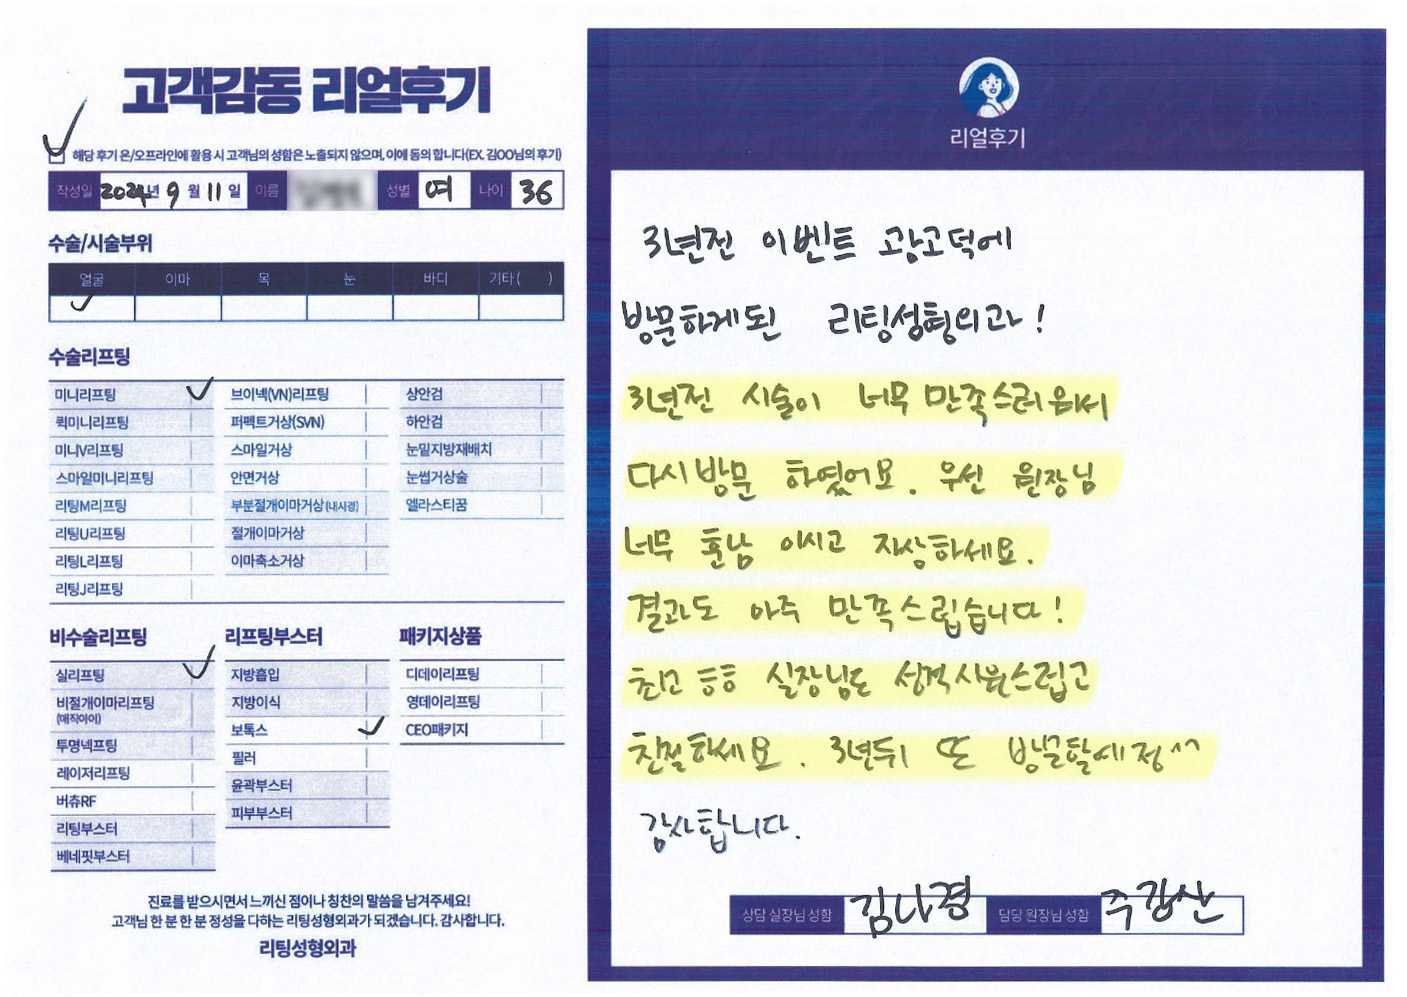 고객감동 리얼후기
해당 후기 온/오프라인에 활용 시 고객님의 성함은 노출되지 않으며, 이에 동의 합니다(EX. 김OO님의 후기)
작성일 2024년 9월 11일 이름 성별 여 나이 36
수술/시술부위
얼굴 이마 목 눈 바디 기타( )
수술리프팅
미니리프팅
퀵미니리프팅
미니V리프팅
스마일미니리프팅
리팅M리프팅
리팅U리프팅
리팅L리프팅
리팅J리프팅
브이넥(VN)리프팅
퍼펙트거상(SVN)
스마일거상
안면거상
부분절개이마거상(내시경)
절개이마거상
이마축소거상
상안검
하안검
눈밑지방재배치
눈썹거상술
엘라스티꿈
비수술리프팅
실리프팅
비절개이마리프팅
(매직아이)
투명넥프팅
레이저리프팅
버츄RF
리팅부스터
베네핏부스터
리프팅부스터
지방흡입
지방이식
보톡스
필러
윤곽부스터
피부부스터
패키지상품
디데이리프팅
영데이리프팅
CEO패키지
진료를 받으시면서 느끼신 점이나 칭찬의 말씀을 남겨주세요!
고객님 한 분 한 분 정성을 다하는 리팅성형외과가 되겠습니다. 감사합니다.
리팅성형외과
리얼후기
3년전 이벤트 광고덕에
방문하게된 리팅성형외과!
3년전 시술이 너무 만족스러워서
다시방문 하였어요. 우선 원장님
너무 훈남 이시고 자상하세요.
결과도 아주 만족스럽습니다!
최고 ㅎㅎ 실장님도 성격시원스럽고
친절하세요. 3년뒤 또 방문할예정^^
감사합니다.
상담 실장님 성함 김나경 담당 원장님 성함